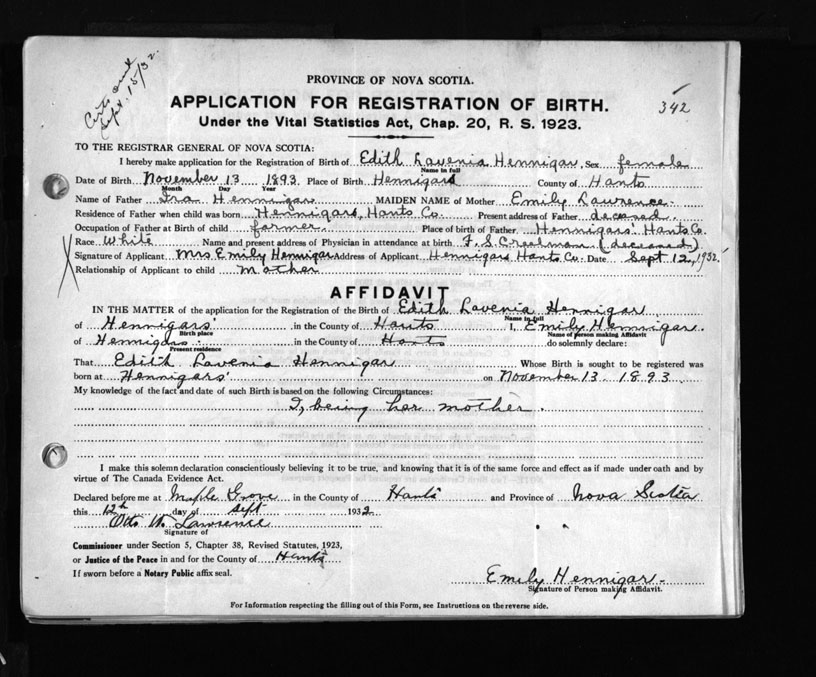 Certs sent
Sept. 15/32.
PROVINCE OF NOVA SCOTIA.
APPLICATION FOR REGISTRATION OF BIRTH.
342
Under the Vital Statistics Act, Chap. 20, R. S. 1923.
TO THE REGISTRAR GENERAL OF NOVA SCOTIA:
I hereby make application for the Registration of Birth of Edith Lavenia Hennigar. Sex female
Name in full
Date of Birth November 13 1893 Place of Birth Hennigars County of Hants
Month Day Year
Name of Father Ira Hennigar MAIDEN NAME of Mother Emily Lawrence
Residence of Father when child was born Hennigars, Hants Co. Present address of Father deceased
Occupation of Father at Birth of child farmer Place of birth of Father Hennigars' Hants Co.
Race White Name and present address of Physician in attendance at birth F. S. Creelman (deceased)
Signature of Applicant Mrs Emily Hennigar Address of Applicant Hennigars Hants Co. Date Sept 12, 1932
Relationship of Applicant to child Mother
AFFIDAVIT
IN THE MATTER of the application for the Registration of the Birth of Edith Lavenia Hennigar
Name in full
of Hennigars' in the County of Hants I, Emily Hennigar.
Birth place Name of person making Affidavit
of Hennigars. in the County of Hants do solemnly declare:
Present residence
That Edith Lavenia Hennigar Whose Birth is sought to be registered was
born at Hennigars' on November 13 1893
My knowledge of the fact and date of such Birth is based on the following Circumstances:
I, being her mother.
I make this solemn declaration conscientiously believing it to be true, and knowing that it is of the same force and effect as if made under oath and by
virtue of The Canada Evidence Act.
Declared before me at Maple Grove in the County of Hants and Province of Nova Scotia
this 12th day of Sept 1932
Otto W. Lawrence
Signature of
Commissioner under Section 5, Chapter 38, Revised Statutes, 1923,
or Justice of the Peace in and for the County of Hants
If sworn before a Notary Public affix seal.
Emily Hennigar.
Signature of Person making Affidavit.
For Information respecting the filling out of this Form, see Instructions on the reverse side.